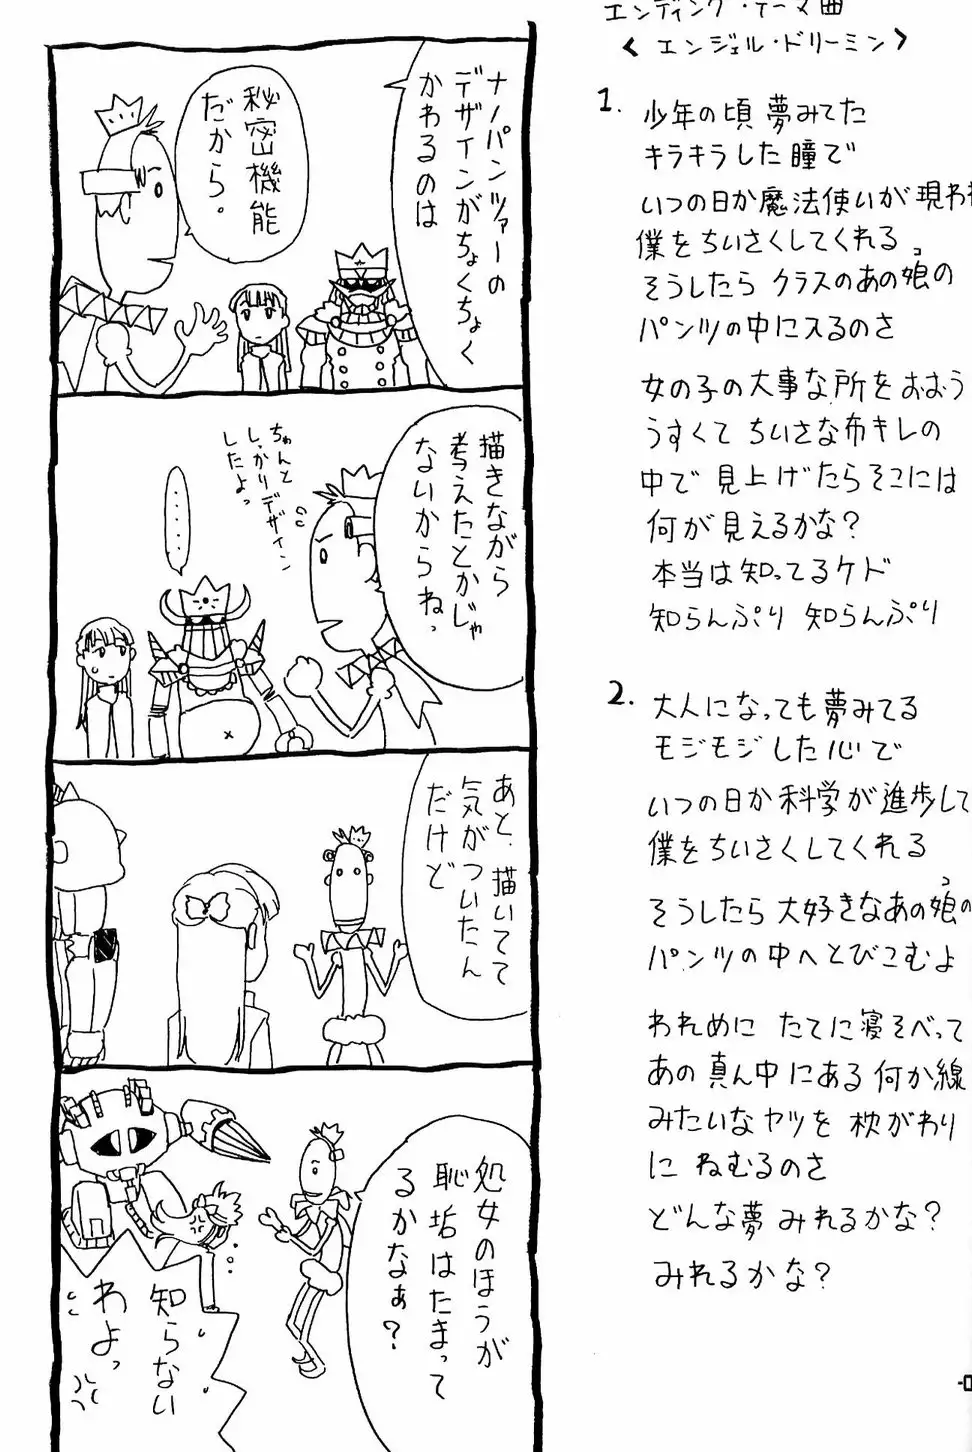 ナノパンツァーの
デザインがちょくちょく
かわるのは
秘密機能
だから。
描きながら
考えたとかじゃ
ないからねっ
ちゃんと
しっかりデザイン
したよっ
‥‥‥
あと、描いてて
気がついたん
だけど
処女のほうが
恥垢はたまって
るかなぁ?
知らない
わよっ
エンディング・テーマ曲
<エンジェル・ドリーミン>
1. 少年の頃 夢みてた
キラキラした瞳で
いつの日か魔法使いが現われ
僕をちいさくしてくれる
そうしたら クラスのあの娘の
コ
パンツの中に入るのさ
女の子の大事な所をおおう
うすくて ちいさな布キレの
中で 見上げたらそこには
何が見えるかな?
本当は知ってるケド
知らんぷり 知らんぷり
2. 大人になっても夢みてる
モジモジした心で
いつの日か科学が進歩して
僕をちいさくしてくれる
そうしたら大好きなあの娘の
コ
パンツの中へとびこむよ
われめに たてに寝そべって
あの真ん中にある何か線
みたいなヤツを 枕がわり
に ねむるのさ
どんな夢 みれるかな?
みれるかな?